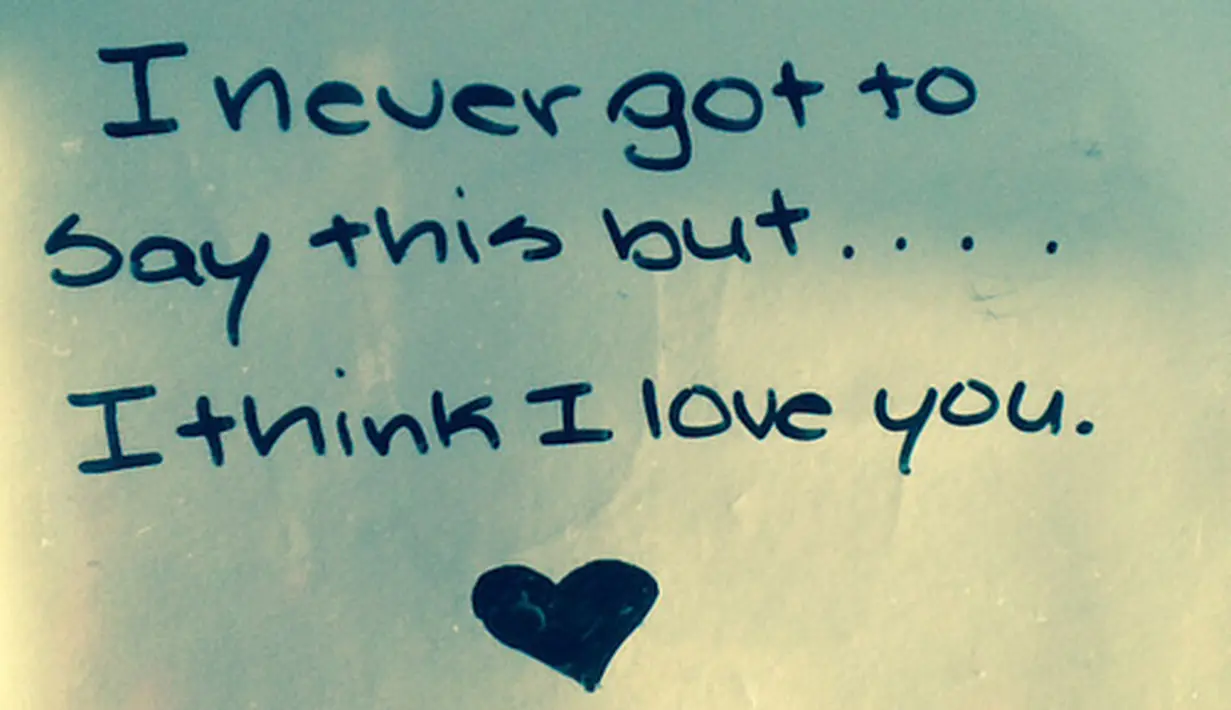 I never got to
say this but....
I think I love you.